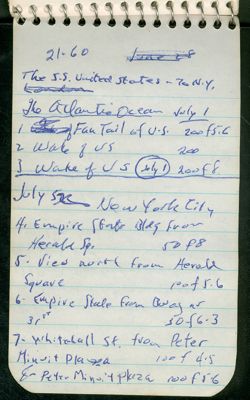 21-60 June 28
The S.S. United States - To N.Y.
London
The Atlantic Ocean July 1
1 Fan Tail of U.S. 200 f 5.6
2 Wake of US 200
3 Wake of US July 1 200 f 8
July 5 New York City
4. Empire State Bldg from
Herald Sq. 50 f 8
5. View north from Herald
Square 100 f 5.6
6- Empire State from Bway nr
31st 50 f 6.3
7- Whitehall St. from Peter
Minuit Plaza 100 f 4.5
8- Peter Minuit Plaza 100 f 5.6